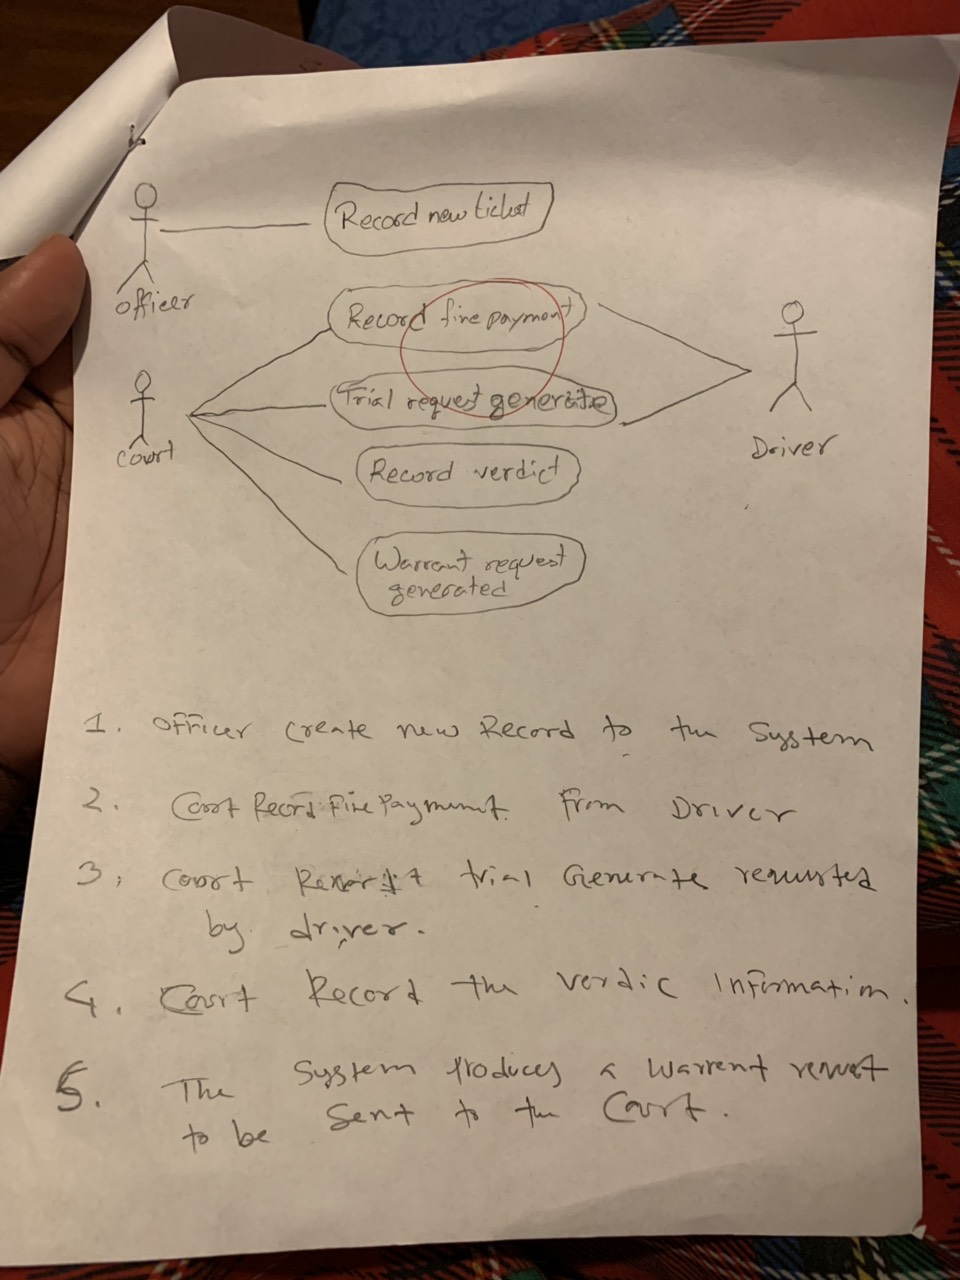 Record new ticket
Officer
Record fine payment
Trial request generate
Court
Driver
Record verdict
Warrant request
generated
1. Officer create new Record to the System
2. Court Record Fine Payment From Driver
3. Court trial Generate requested
by driver.
4. Court Record the verdic Information.
5. The System produces a Warrent
to be Sent to the Court.